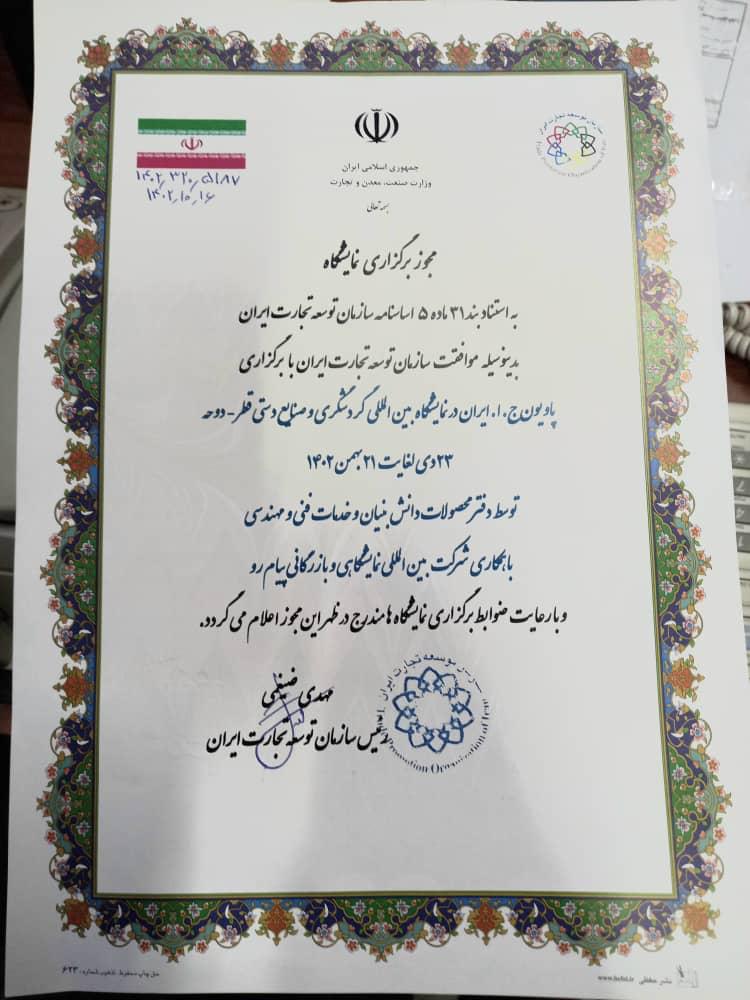 جمهوری اسلامی ایران
وزارت صنعت، معدن و تجارت
بسمه تعالی
سازمان توسعه تجارت ایران
۱۴۰۲٫۳۲۰٫۵۱۸۷
۱۴۰۲٫۱۰٫۱۶
مجوز برگزاری نمایشگاه
به استناد بند ۳۱ ماده ۵ اساسنامه سازمان توسعه تجارت ایران
بدینوسیله موافقت سازمان توسعه تجارت ایران با برگزاری
پاویون ج.ا.ایران در نمایشگاه بین المللی گردشگری و صنایع دستی قطر - دوحه
۲۳ دی لغایت ۲۱ بهمن ۱۴۰۲
توسط دفتر محصولات دانش بنیان و خدمات فنی و مهندسی
با همکاری شرکت بین المللی نمایشگاهی و بازرگانی پیام رو
و با رعایت ضوابط برگزاری نمایشگاه ها مندرج در ظهر این مجوز اعلام می گردد.
مهدی ضیغمی
رئیس سازمان توسعه تجارت ایران
توسعه تجارت ایران
Promotion Organization of Iran
حق چاپ محفوظ، شماره: ۶۲۳
نشر حفظی